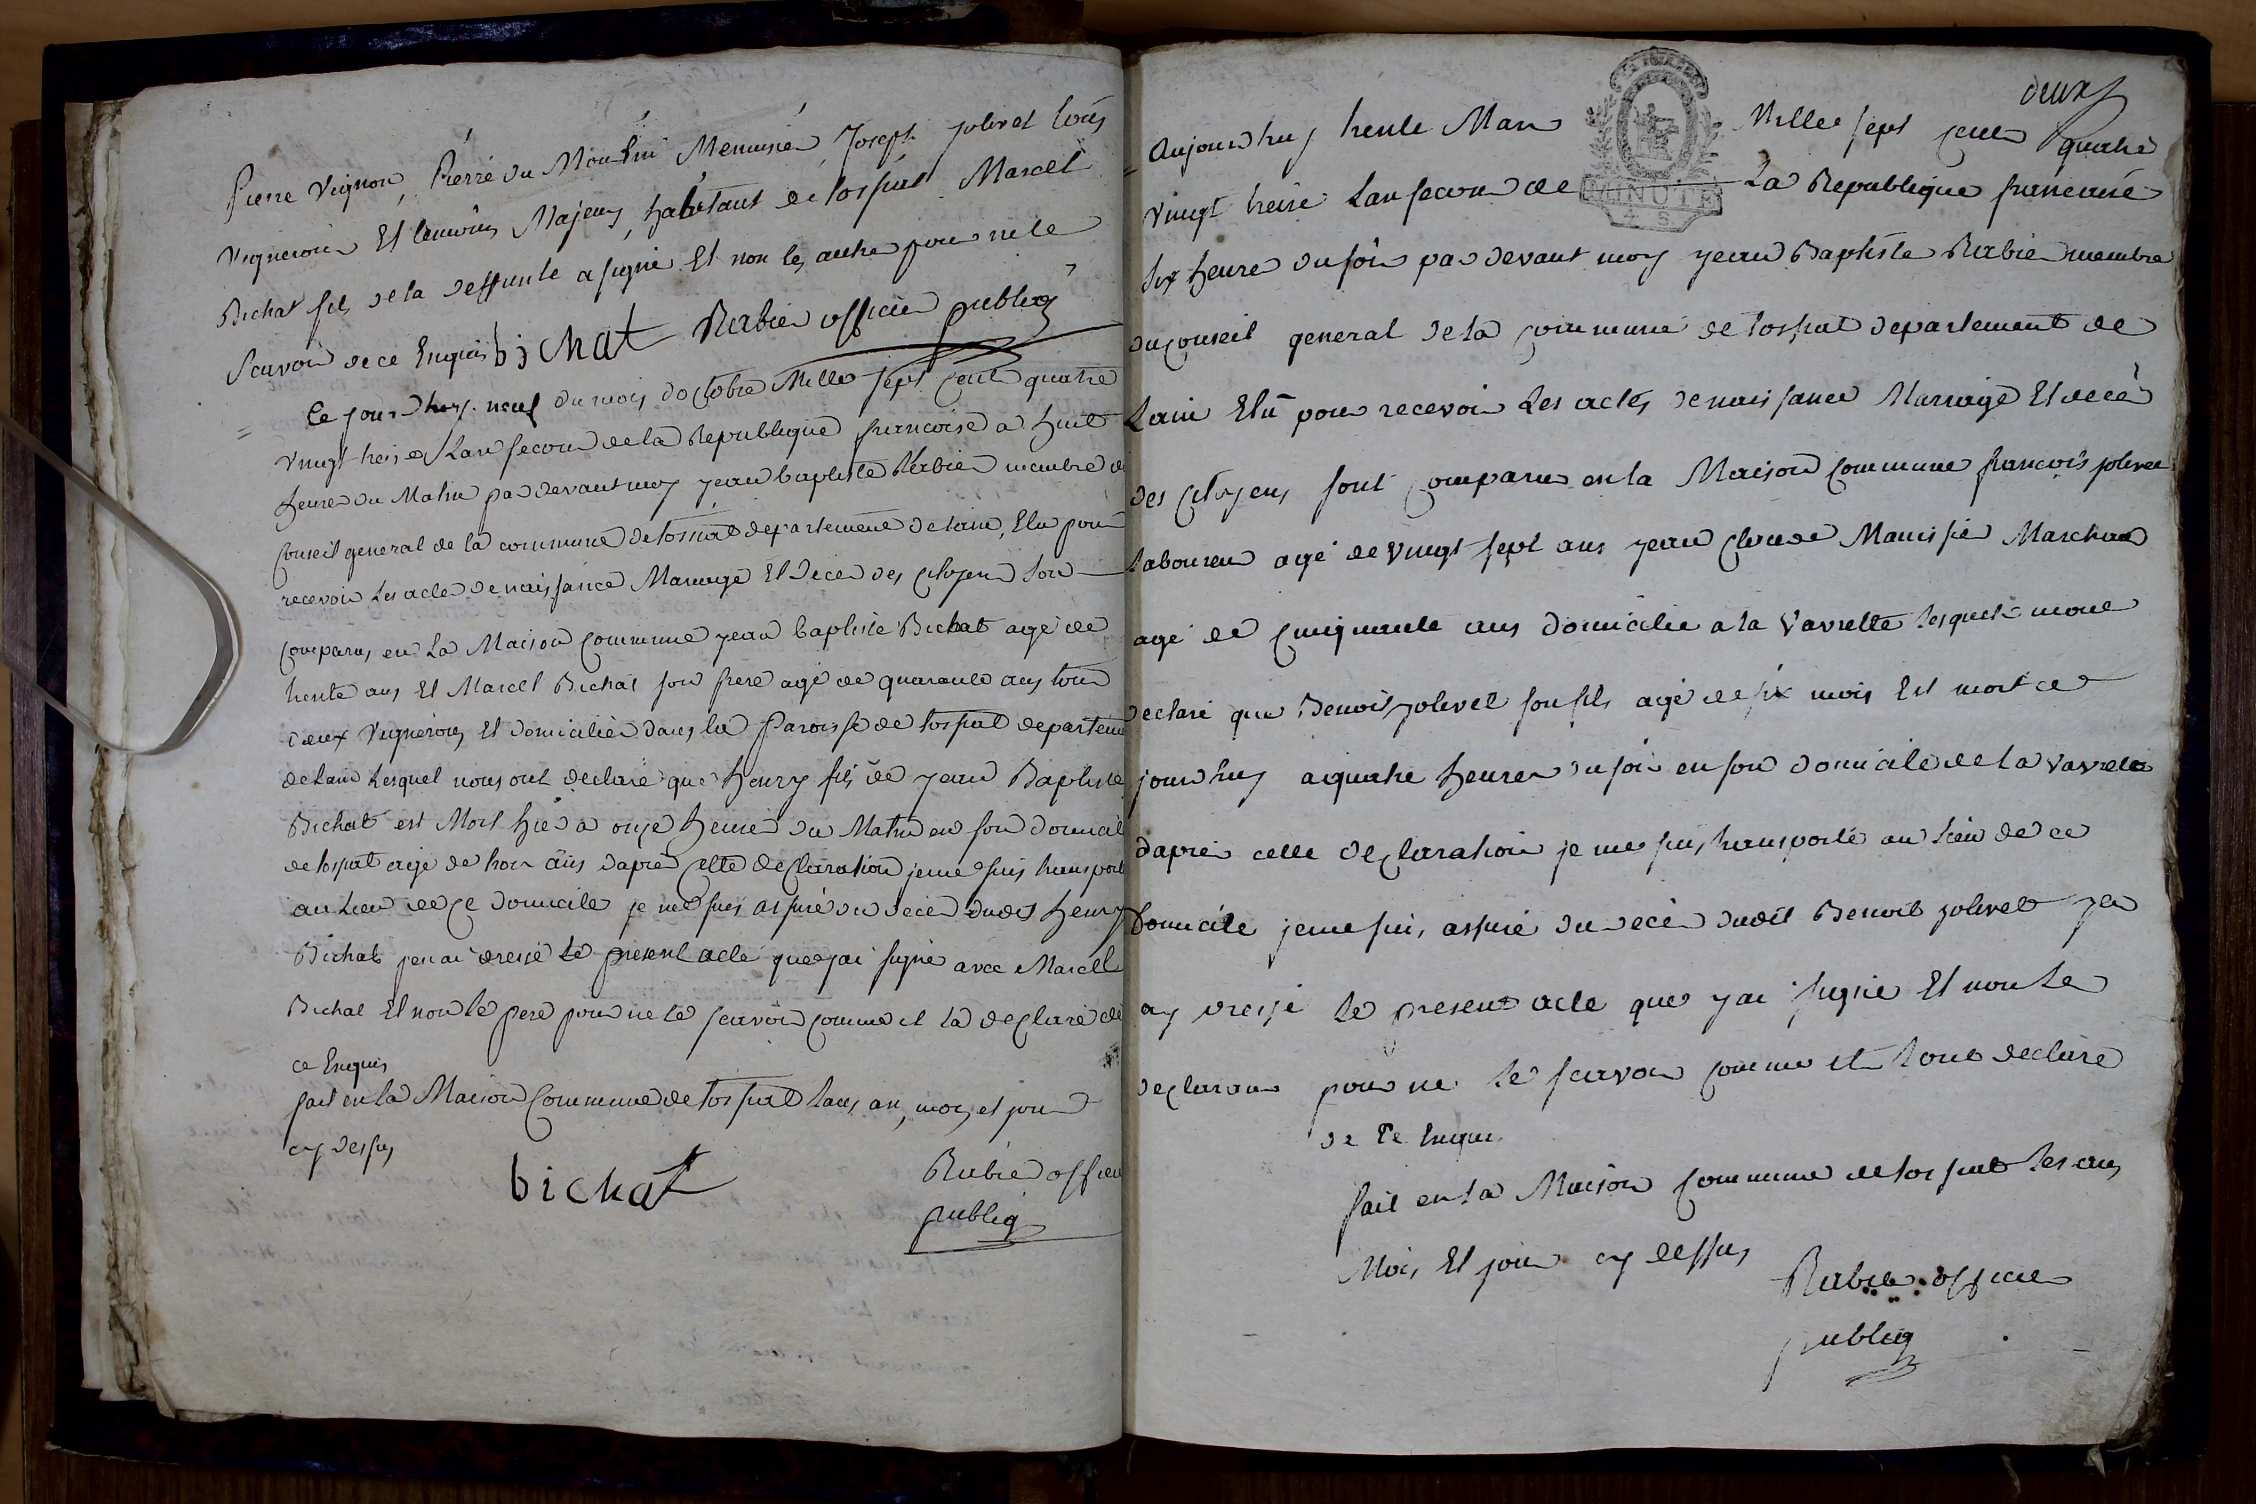 Pierre Vignon, Pierre du Moulin Menuisié, Joseph jolivet tous
vigneron Et temoins Majeurs habitant de tossiat Marcel
Bichat fils de la deffunte a signé Et non les autre pour ne le
scavoir de ce Enquis bichat Rabier officier publiq
Ce jourdhuy neuf du mois doctobre Mille sept cent quatre
vingt treise Lan second de la Republique francoise a huit
heure du Matin par devant moy jean baptiste Rabier membre du
Conseil general de la commune de tossiat departement de lain, Elu pour
recevoir les acte de naissance Mariage Et deces des citoyens sont
comparus en la Maison commune jean baptiste Bichat agé de
trente ans Et Marcel Bichat son frere agé de quarante ans tous
deux vignerons Et domicilié dans la paroisse de tossiat departement
de Lain Lesquel nous ont declaré que henry fils de jean Baptiste
Bichat est Mort hié a onze heure du Matin en son domicile
de tossiat agé de trois ans dapré cette declaration je me suis transporté
au Lieu de ce domicile je me suis assuré du deces dudit henry
Bichat jen ai dressé le present acte que jai signé avec Marcel
Bichat Et non le pere pour ne le scavoir comme il la declaré de
ce Enquis
fait en la Maison Commune de tossiat Lans an, mois et jour
cy dessus
bichat
Rabié officier
publiq
deux
Aujourdhuy trente Mars Mille sept cent quatre
vingt treise Lan second de La Republique francaise
six heure du soir par devant moy jean Baptiste Rabier membre
du conseil general de la commune de tossiat departement de
Lain Elu pour recevoir Les actes de naissance Mariage Et decè
des citoyens sont comparus en la Maison commune francois jolivet
Laboureur agé de vingt sept ans jean claude Manissié Marchand
agé de cinquante ans domicilié a la vavrette lesquels mont
declaré que Benoit jolivet son fils agé de six mois Est mort ce
jourdhuy a quatre heure du soir en son domicile de la vavrette
dapré cette declaration je me suis transporté au Lieu de ce
domicile je me suis assuré du decè dudit Benoit jolivet jen
ay dressé le present acte que jai signé Et non le
declarans pour ne le scavoir comme il lont declaré
de ce Enquis
fait en la Maison commune de tossiat Les ans
Mois Et jour cy dessus
Rabier officier
publiq
MINUTE
4. S.